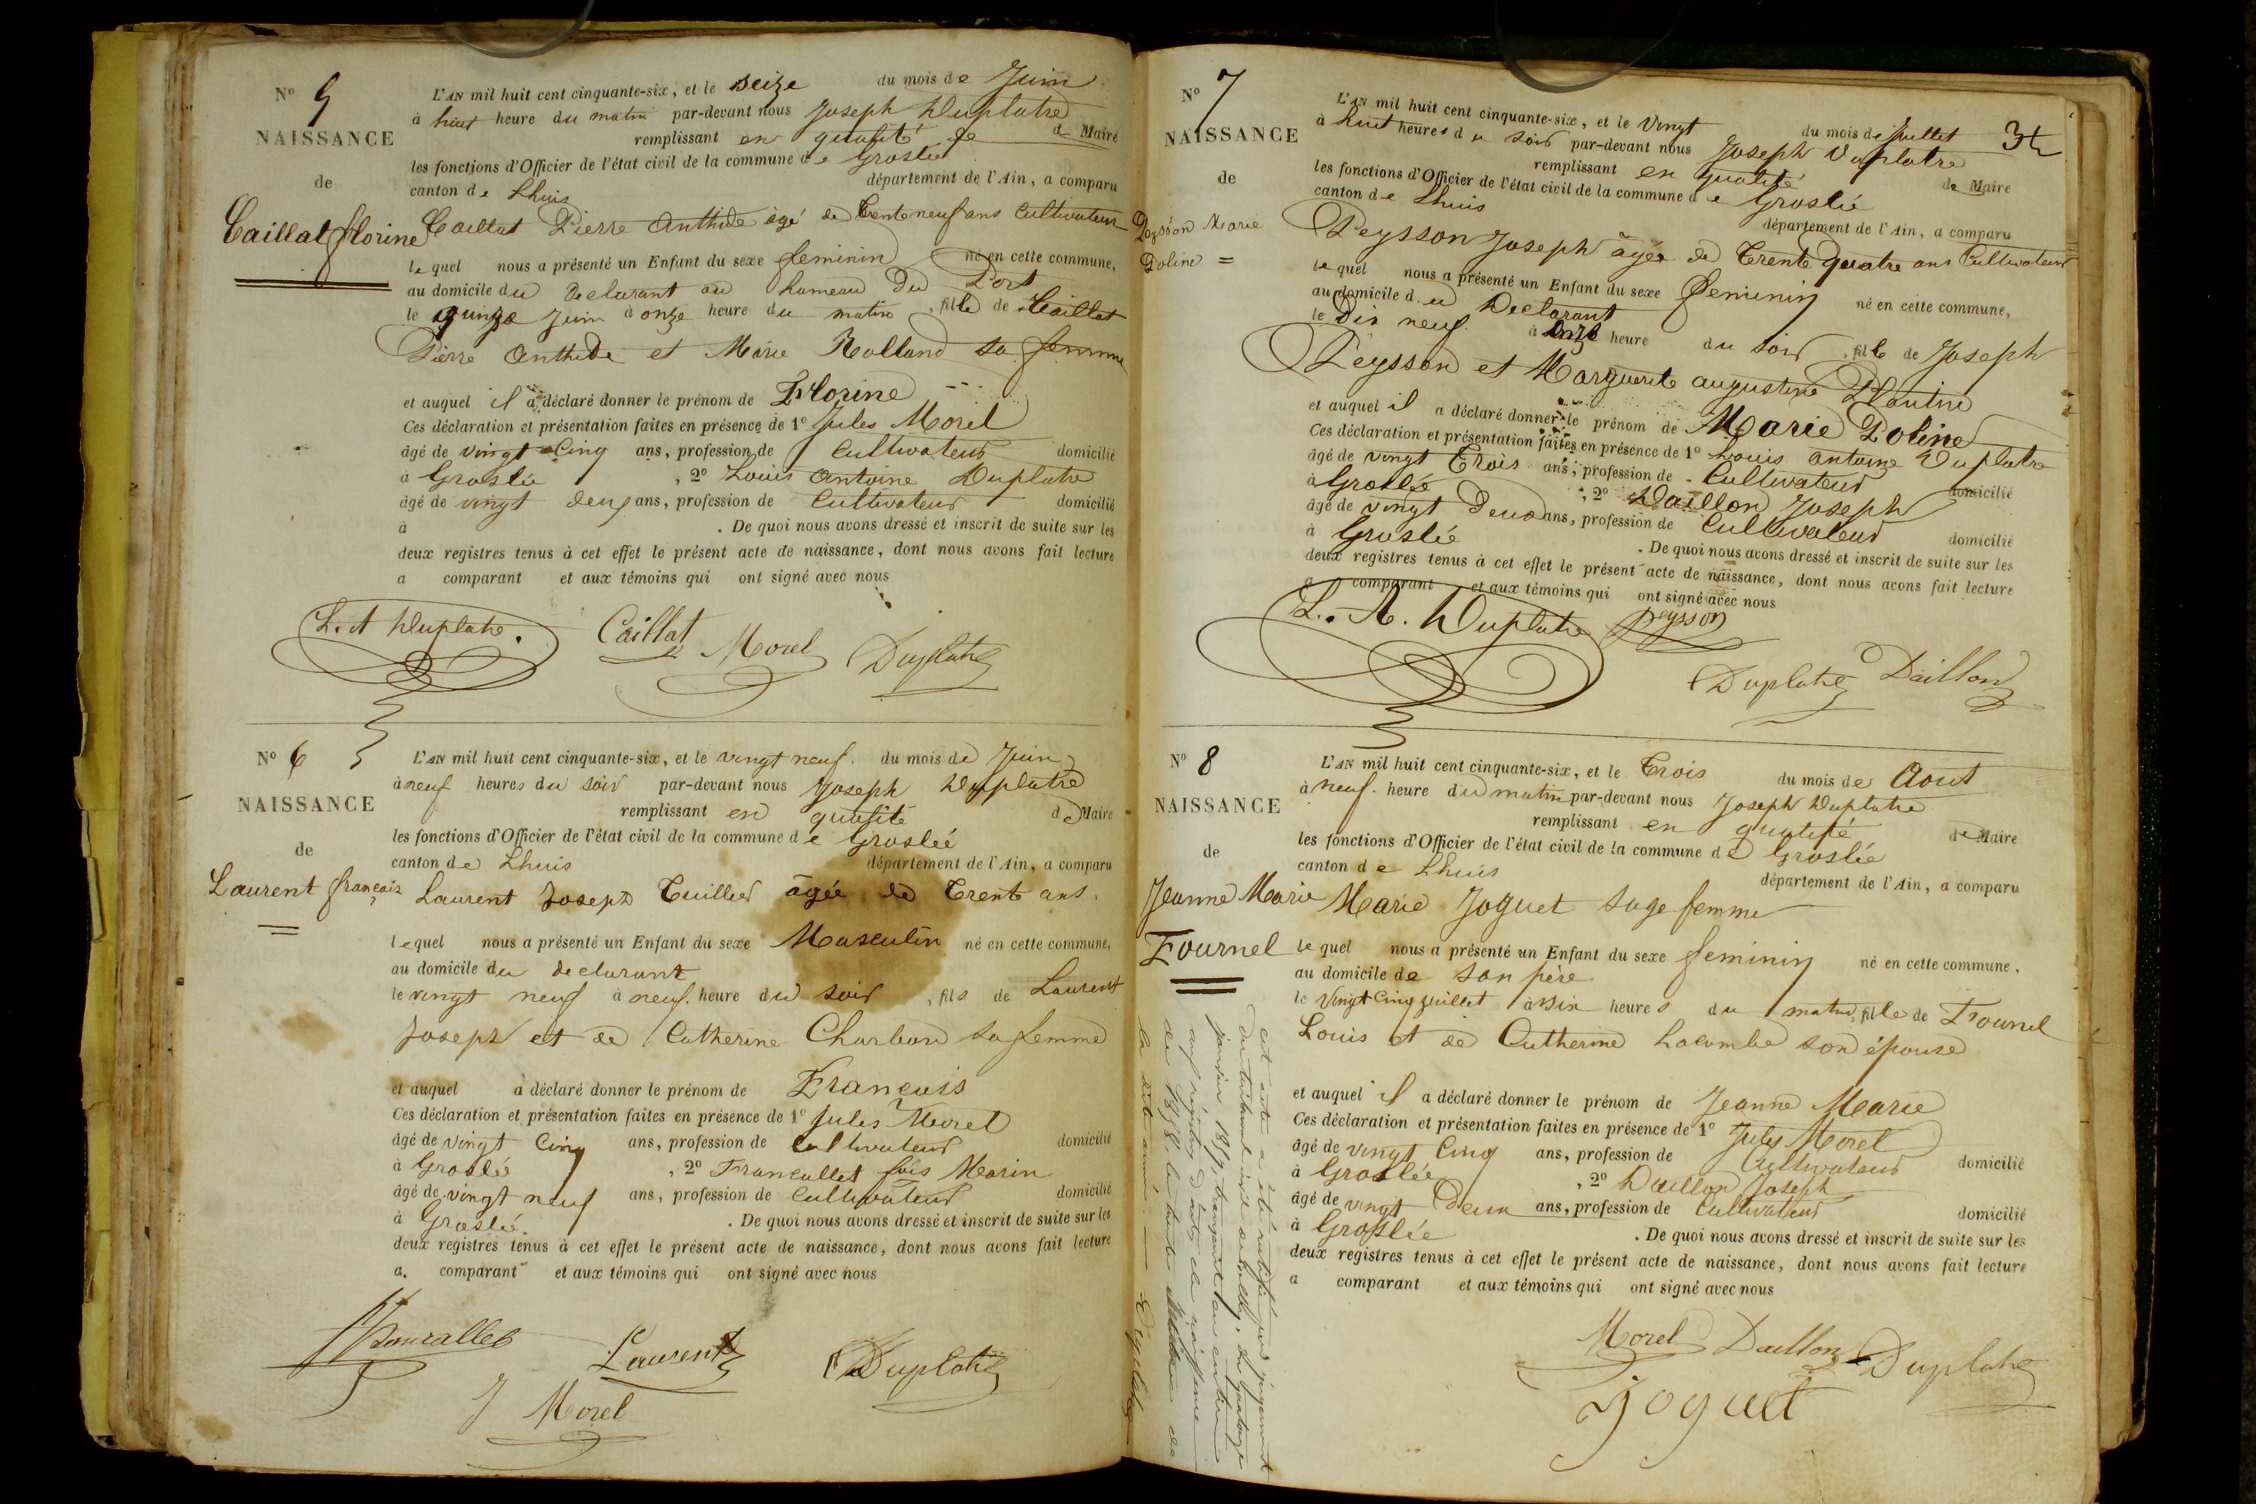 N° 5
NAISSANCE
de
Caillat florine
L'AN mil huit cent cinquante-six, et le seize du mois de Juin
à huit heure du matin par-devant nous Joseph Duplatre
remplissant en qualité de de Maire
les fonctions d'Officier de l'état civil de la commune de Groslée
canton de Lhuis département de l'Ain, a comparu
Caillat Pierre Anthide âgé de trente neuf ans Cultivateur
lequel nous a présenté un Enfant du sexe feminin né en cette commune,
au domicile du Declarant au hameau Du Port
le quinze Juin à onze heure du matin, fille de Caillat
Pierre Anthide et Marie Rolland sa femme
et auquel il a déclaré donner le prénom de Florine
Ces déclaration et présentation faites en présence de 1° Jules Morel
âgé de vingt Cinq ans, profession de Cultivateur domicilié
à Groslée, 2° Louis Antoine Duplatre
âgé de vingt deux ans, profession de Cultivateur domicilié
à . De quoi nous avons dressé et inscrit de suite sur les
deux registres tenus à cet effet le présent acte de naissance, dont nous avons fait lecture
a comparant et aux témoins qui ont signé avec nous
L. A Duplatre. Caillat Morel Duplatre
N° 6
NAISSANCE
de
Laurent français
L'AN mil huit cent cinquante-six, et le vingt neuf. du mois de Juin
à neuf heures du soir par-devant nous Joseph Duplatre
remplissant en qualité de Maire
les fonctions d'Officier de l'état civil de la commune de Groslée
canton de Lhuis département de l'Ain, a comparu
Laurent Joseph Tuillier âgée de Trente ans.
lequel nous a présenté un Enfant du sexe Masculin né en cette commune,
au domicile du declarant
le vingt neuf à neuf. heure du soir, fils de Laurent
Joseph et de Catherine Charbon sa femme
et auquel a déclaré donner le prénom de François
Ces déclaration et présentation faites en présence de 1° Jules Morel
âgé de vingt Cinq ans, profession de Cultivateur domicilié
à Groslée, 2° Francallet fois Marin
âgé de vingt neuf ans, profession de Cultivateur domicilié
à Groslée. De quoi nous avons dressé et inscrit de suite sur les
deux registres tenus à cet effet le présent acte de naissance, dont nous avons fait lecture
a. comparant et aux témoins qui ont signé avec nous
Francallet Laurent Duplatre
J Morel
34
N° 7
NAISSANCE
de
Peysson Marie
Poline =
L'AN mil huit cent cinquante-six, et le Vingt du mois de Juillet
à huit heures du soir par-devant nous Joseph Duplatre
remplissant en qualité de Maire
les fonctions d'Officier de l'état civil de la commune de Groslée
canton de Lhuis département de l'Ain, a comparu
Peysson Joseph âgée de Trente quatre ans Cultivateur
lequel nous a présenté un Enfant du sexe feminin né en cette commune,
au domicile du Declarant
le Dix neuf. à onze heure du soir, fille de Joseph
Peysson et Marguerite augustine
et auquel il a déclaré donner le prénom de Marie Poline
Ces déclaration et présentation faites en présence de 1° Louis antoine Duplatre
âgé de vingt Trois ans, profession de Cultivateur domicilié
à Groslée, 2° Daillon Joseph
âgé de vingt Deux ans, profession de Cultivateur domicilié
à Groslée. De quoi nous avons dressé et inscrit de suite sur les
deux registres tenus à cet effet le présent acte de naissance, dont nous avons fait lecture
a comparant et aux témoins qui ont signé avec nous
L. A. Duplatre Peysson
Duplatre Daillon
N° 8
NAISSANCE
de
Jeanne Marie
Fournel
L'AN mil huit cent cinquante-six, et le Trois du mois de Aout
à neuf. heure du matin par-devant nous Joseph Duplatre
remplissant en qualité de Maire
les fonctions d'Officier de l'état civil de la commune de Groslée
canton de Lhuis département de l'Ain, a comparu
Marie Joguet sage femme
lequel nous a présenté un Enfant du sexe feminin né en cette commune,
au domicile de son père
le Vingt Cinq juillet à six heures du matin, fille de Fournel
Louis et de Catherine Lacombe son épouse
et auquel il a déclaré donner le prénom de Jeanne Marie
Ces déclaration et présentation faites en présence de 1° Jules Morel
âgé de vingt Cinq ans, profession de Cultivateur domicilié
à Groslée, 2° Daillon Joseph
âgé de vingt Deux ans, profession de Cultivateur domicilié
à Groslée. De quoi nous avons dressé et inscrit de suite sur les
deux registres tenus à cet effet le présent acte de naissance, dont nous avons fait lecture
a comparant et aux témoins qui ont signé avec nous
Morel Daillon Duplatre
Joguet
cet acte a été rectifié par jugement
du tribunal civil de Belley, du quatorze
janvier 1857, transcrit en entier
aux registres d'actes de naissance
de 1858, la huit de
la dite année. Duplatre